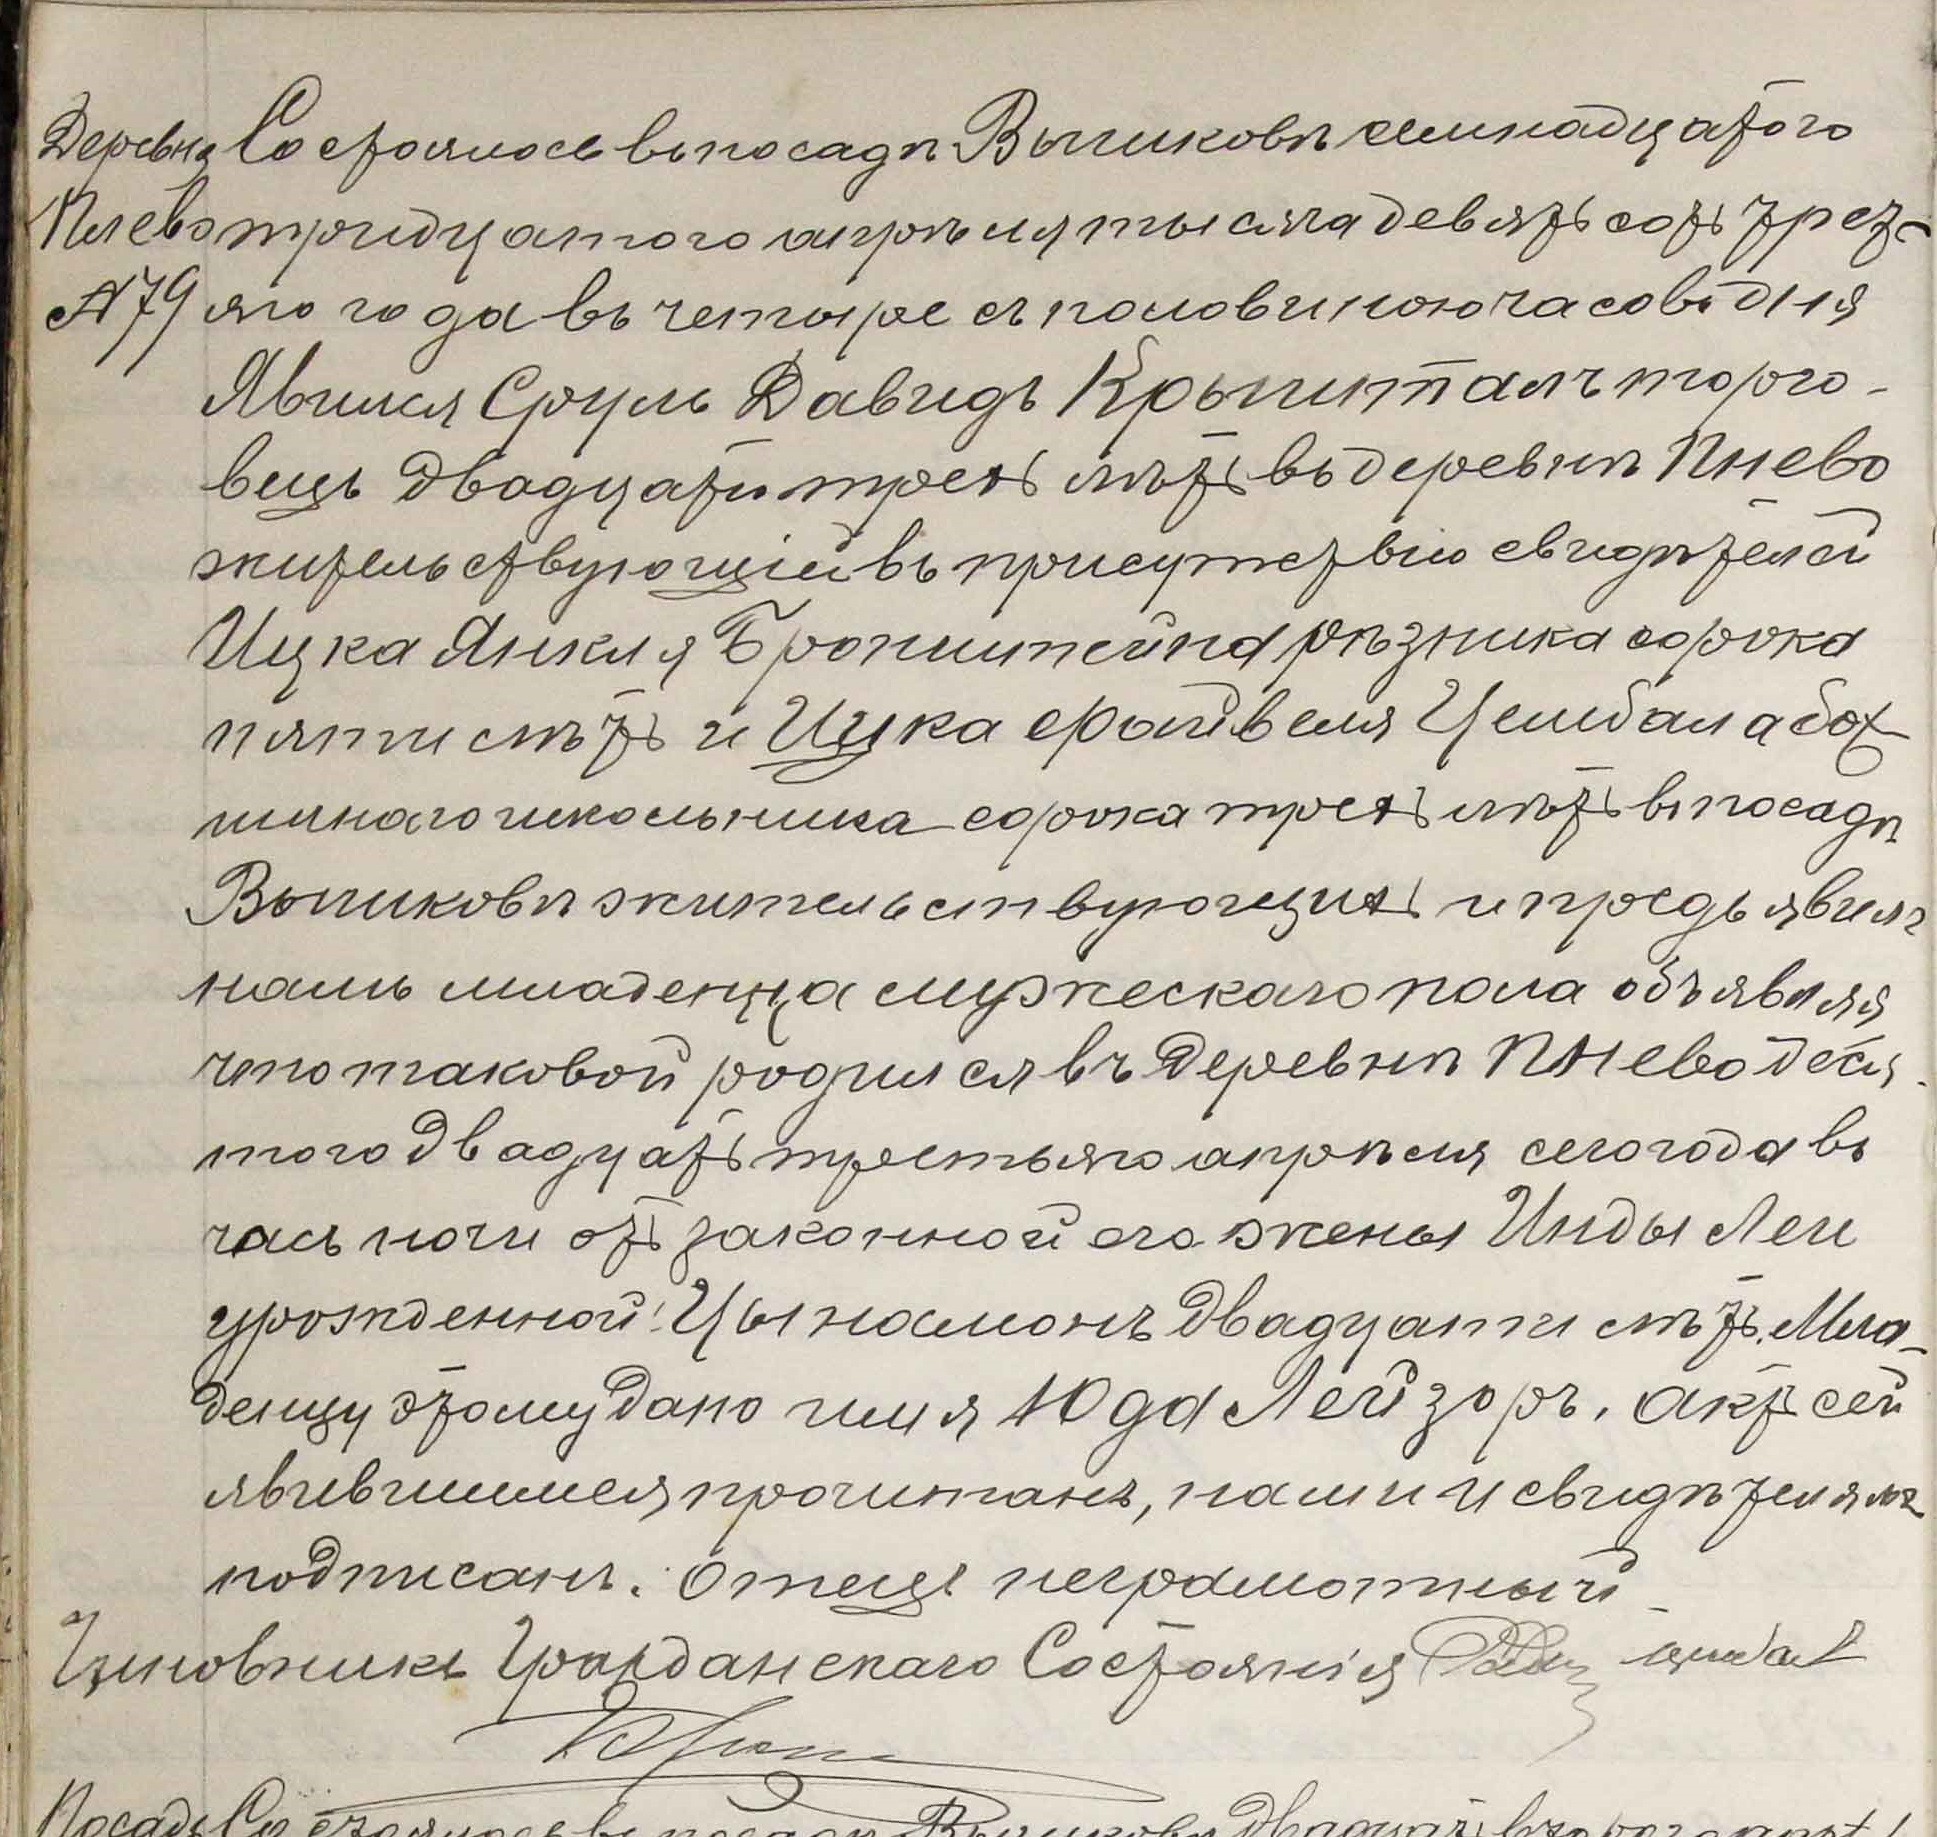 Деревня Состоялось въ посадѣ Вышковѣ семнадцатого
Пнево тридцатого апрѣля тысяча девятьсотъ трет-
№ 79 яго года въ четыре съ половиною часовъ дня
Явился Сруль Давидъ Крышталъ торго-
вецъ двадцати трехъ лѣтъ въ деревнѣ Пнево
жительствующій въ присутствіи свидѣтелей
Ицка Янкля Бронштейна рѣзника сорока
пяти лѣтъ и Ицка Файвеля Цембала бож-
ничнаго школьника сорока трехъ лѣтъ въ посадѣ
Вышковѣ жительствующихъ и предъявилъ
намъ младенца мужескаго пола объявляя
что таковой родился въ деревнѣ Пнево деся-
того двадцать третьяго апрѣля сего года въ
часъ ночи отъ законной его жены Инды Леи
урожденной Цынамонъ двадцати лѣтъ. Мла-
денцу этому дано имя Юда Лейзоръ. Актъ сей
явившимся прочитанъ, нами и свидѣтелямъ
подписанъ. Отецъ неграмотный
Чиновникъ Гражданскаго Состоянія
Посадъ Состоялось въ посадѣ Вышковѣ двадцать втораго